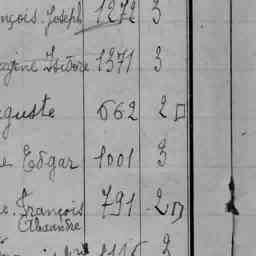 nçois Joseph 1272 3
Isidore 1371 3
guste 662 2
e Edgar 1001 3
e François 791 2
Alexandre